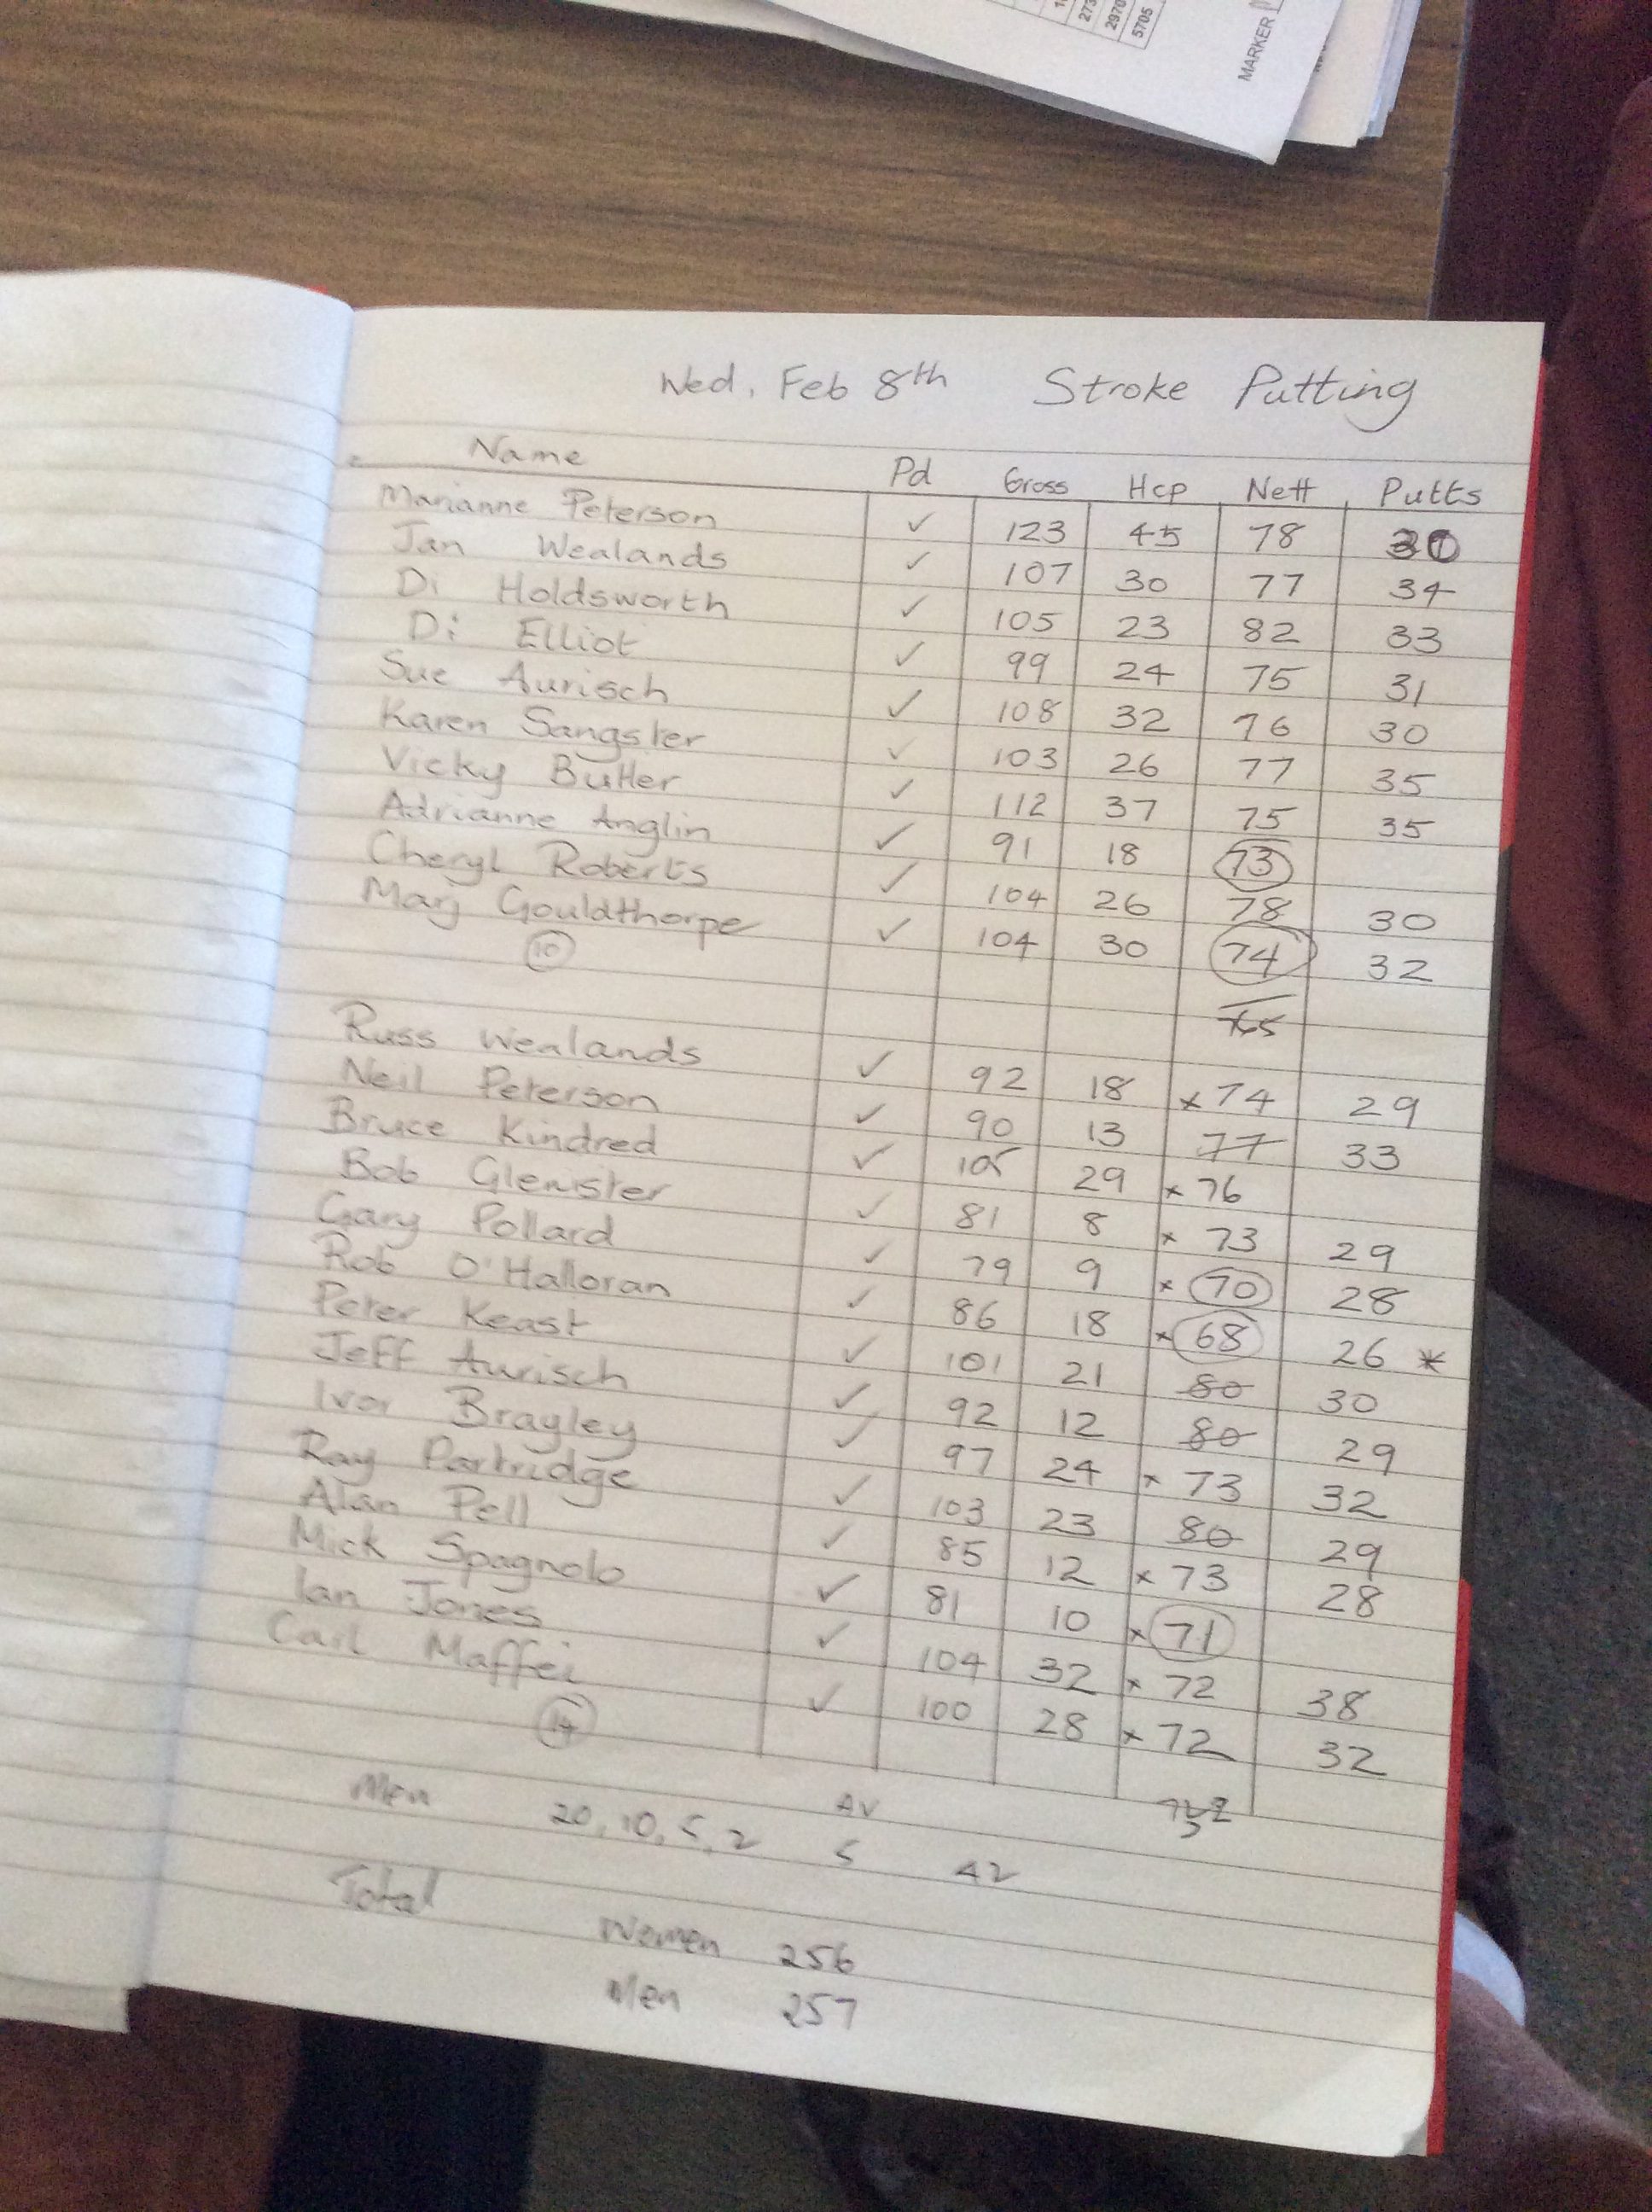 273
2970
5705
MARKER
Wed, Feb 8th Stroke Putting
Name Pd Gross Hcp Nett Putts
Marianne Peterson ✓ 123 45 78
Jan Wealands ✓ 107 30 77 34
Di Holdsworth ✓ 105 23 82 33
Di Elliot ✓ 99 24 75 31
Sue Aurisch ✓ 108 32 76 30
Karen Sangster ✓ 103 26 77 35
Vicky Butler ✓ 112 37 75 35
Adrianne Anglin ✓ 91 18 73
Cheryl Roberts ✓ 104 26 78 30
Marj Gouldthorpe ✓ 104 30 74 32
10
765
Russ Wealands ✓ 92 18 x 74 29
Neil Peterson ✓ 90 13 77 33
Bruce Kindred ✓ 105 29 x 76
Bob Glenister ✓ 81 8 x 73 29
Gary Pollard ✓ 79 9 x 70 28
Rob O'Halloran ✓ 86 18 x 68 26 *
Peter Keast ✓ 101 21 80 30
Jeff Aurisch ✓ 92 12 80 29
Ivor Bragley ✓ 97 24 x 73 32
Ray Partridge ✓ 103 23 80 29
Alan Pell ✓ 85 12 x 73 28
Mick Spagnolo ✓ 81 10 x 71
Ian Jones ✓ 104 32 x 72 38
Carl Maffei ✓ 100 28 x 72 32
14
Men 20, 10, 5, 2 AV 5 42
Total
Women 256
Men 257